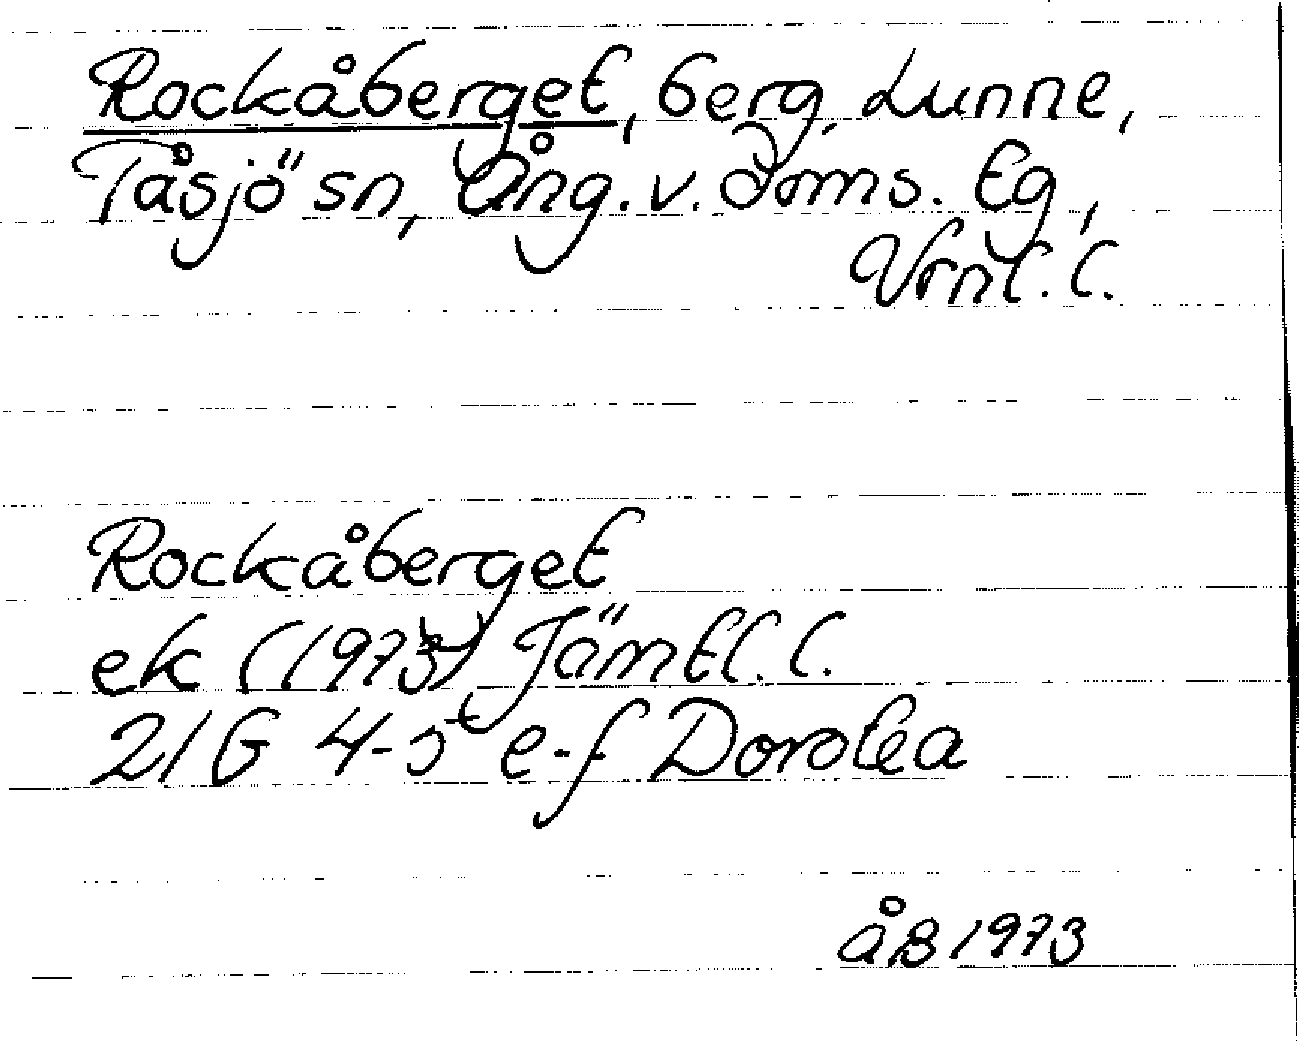 Rockåberget, berg, Lunne,
Tåsjö sn, Ång. v. doms. tg,
Vrnl. l.
Rockåberget
ek (1973) Jämtl. l.
21G 4-5 e-f Dorotea
åB 1973